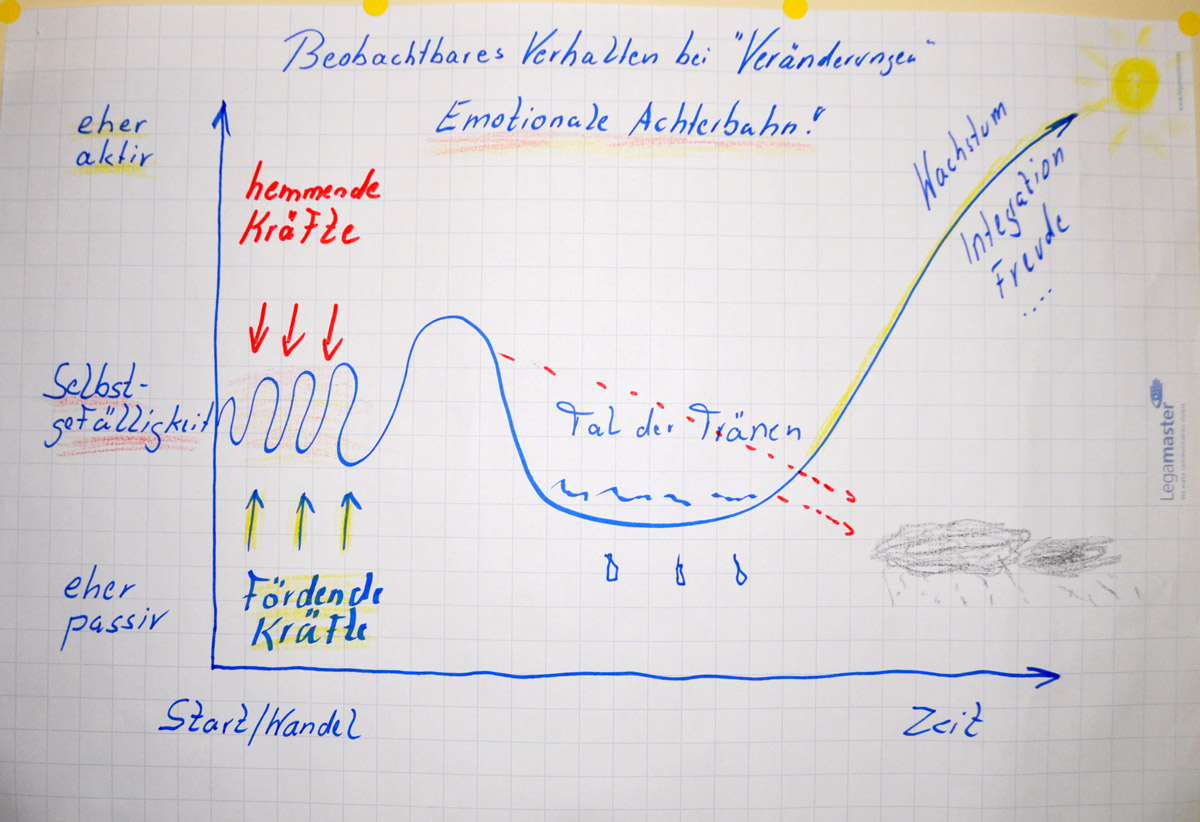 Beobachtbares Verhalten bei "Veränderungen"
Emotionale Achterbahn!
eher
aktiv
hemmende
Kräfte
Wachstum
Integration
Freude
....
Selbst-
gefälligkeit
Tal der Tränen
Legamaster
eher
passiv
Fördende
Kräfte
Start/Wandel
Zeit